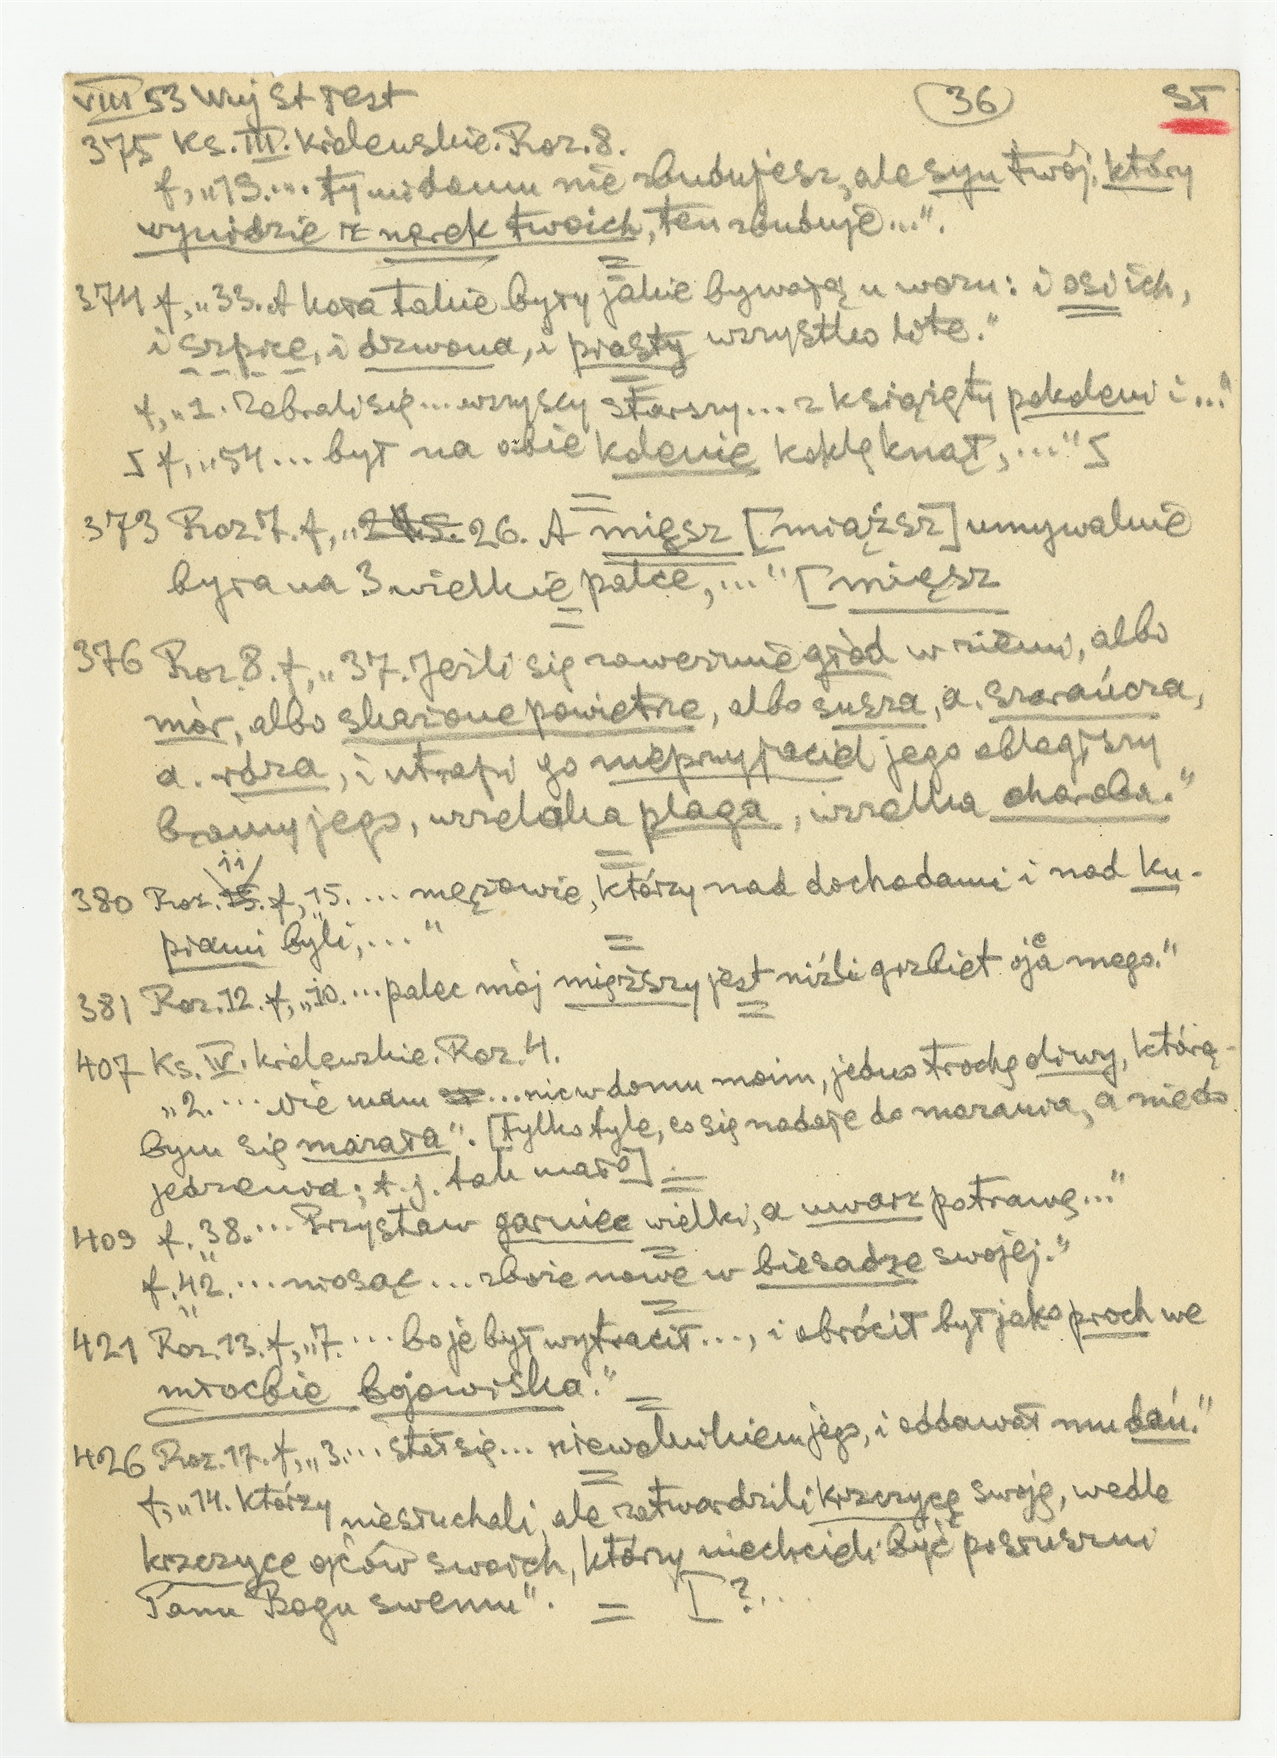 VIII 53 Wuj St Test 36 ST
375 Ks. III. Królewskie. Roz. 8.
f, „19. ... ty mi domu nie zbudujesz, ale syn twój, który
wynidzie z nerek twoich, ten zbuduje...".
374 f, „33. A koła takie były jakie bywają u wozu: i osi ich,
i szpice, i dzwona, i piasty wszystko lite."
f, „1. Zebrali się ... wszyscy starszy ... z książęty pokoleni i ..."
f, „54 ... był na obie kolenie poklęknął, ..."
373 Roz. 7. f, „26. A mięsz [miąższ] umywalnie
była na 3 wielkie palce, ..." [mięsz
376 Roz. 8. f, „37. Jeśli się zaweźmie głód w ziemi, albo
mór, albo skażone powietrze, albo susza, a. szarańcza,
a. rdza, i utrapi go nieprzyjaciel jego obległszy
bramy jego, wszelaka plaga, wszelka choroba."
380 Roz. 11. f, 15. ... mężowie, którzy nad dochodami i nad ku-
piami byli, ..."
381 Roz. 12. f, „10. ... palec mój mięższy jest niźli grzbiet ojca mego."
407 Ks. IV. Królewskie. Roz. 4.
„2. ... nie mam ... nic w domu moim, jedno trochę oliwy, którą-
bym się mazała". [tylko tyle, co się nadaje do mazania, a nie do
jedzenia; t. j. tak mało]
409 f. 38. ... Przystaw garniec wielki, a uwarz potrawę..."
f. 42. ... niosąc ... zboże nowe w biesadze swojej."
421 Roz. 13. f, „7. ... bo je był wytracił ..., i obrócił był jako proch we
młoćbie bojowiska."
426 Roz. 17. f, „3. ... stał się ... niewolnikiem jego, i oddawał mu dań."
f, „14. Którzy nie słuchali, ale zatwardzili krzczycę swoję, wedle
krzczyce ojców swoich, którzy nie chcieli być posłuszni
Panu Bogu swemu". [?..